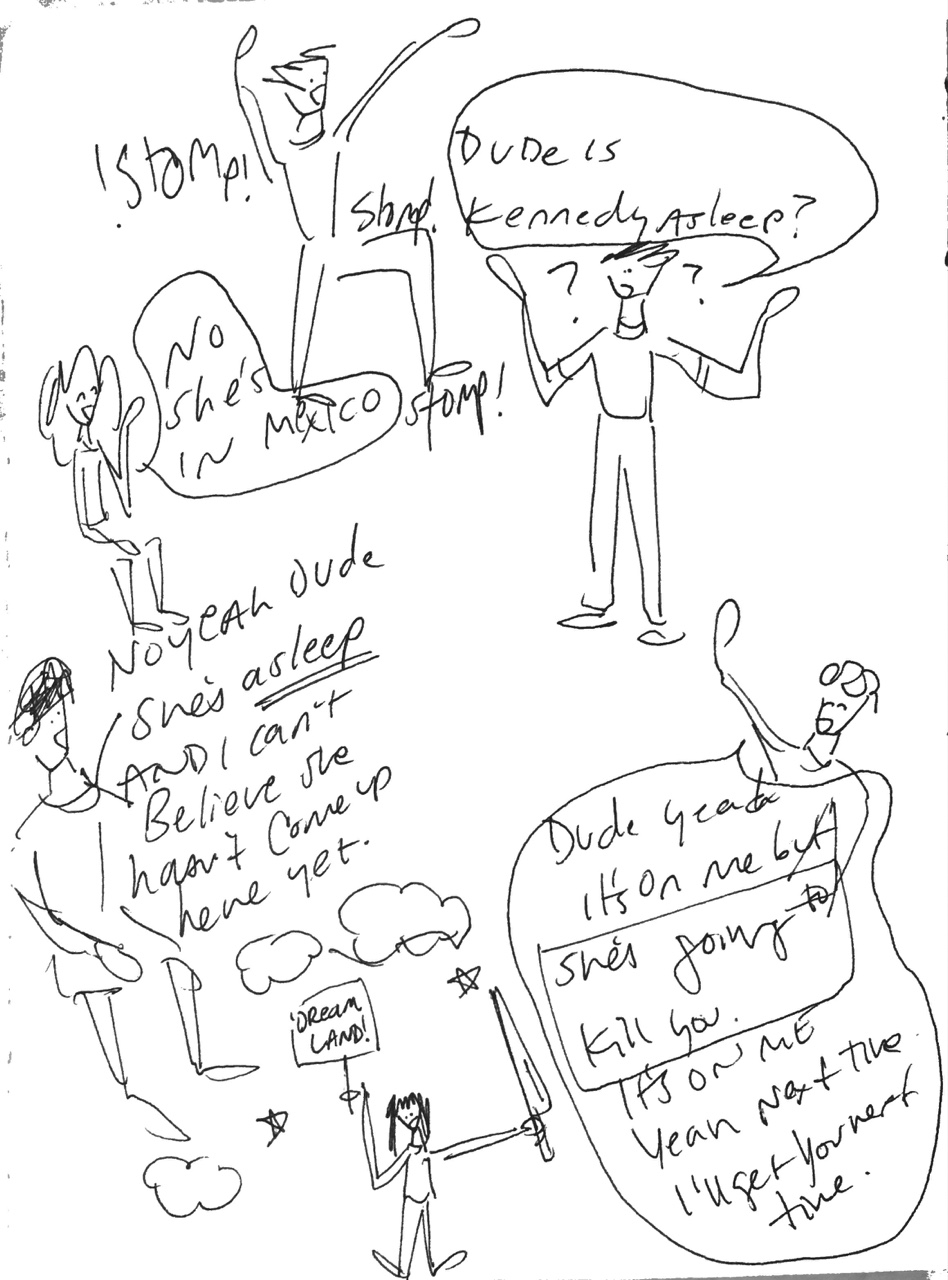 !STOMP!
Stomp!
DUDE IS
Kennedy Asleep?
? ?
NO
she's
IN MEXICO
stomp!
NO YEAH DUDE
She's asleep
AND I can't
Believe she
hasn't come up
here yet.
Dude yeah
it's on me but
she's going to
kill you.
It's ON ME
Yeah Next time
I'll get you next
time.
'DREAM
LAND!